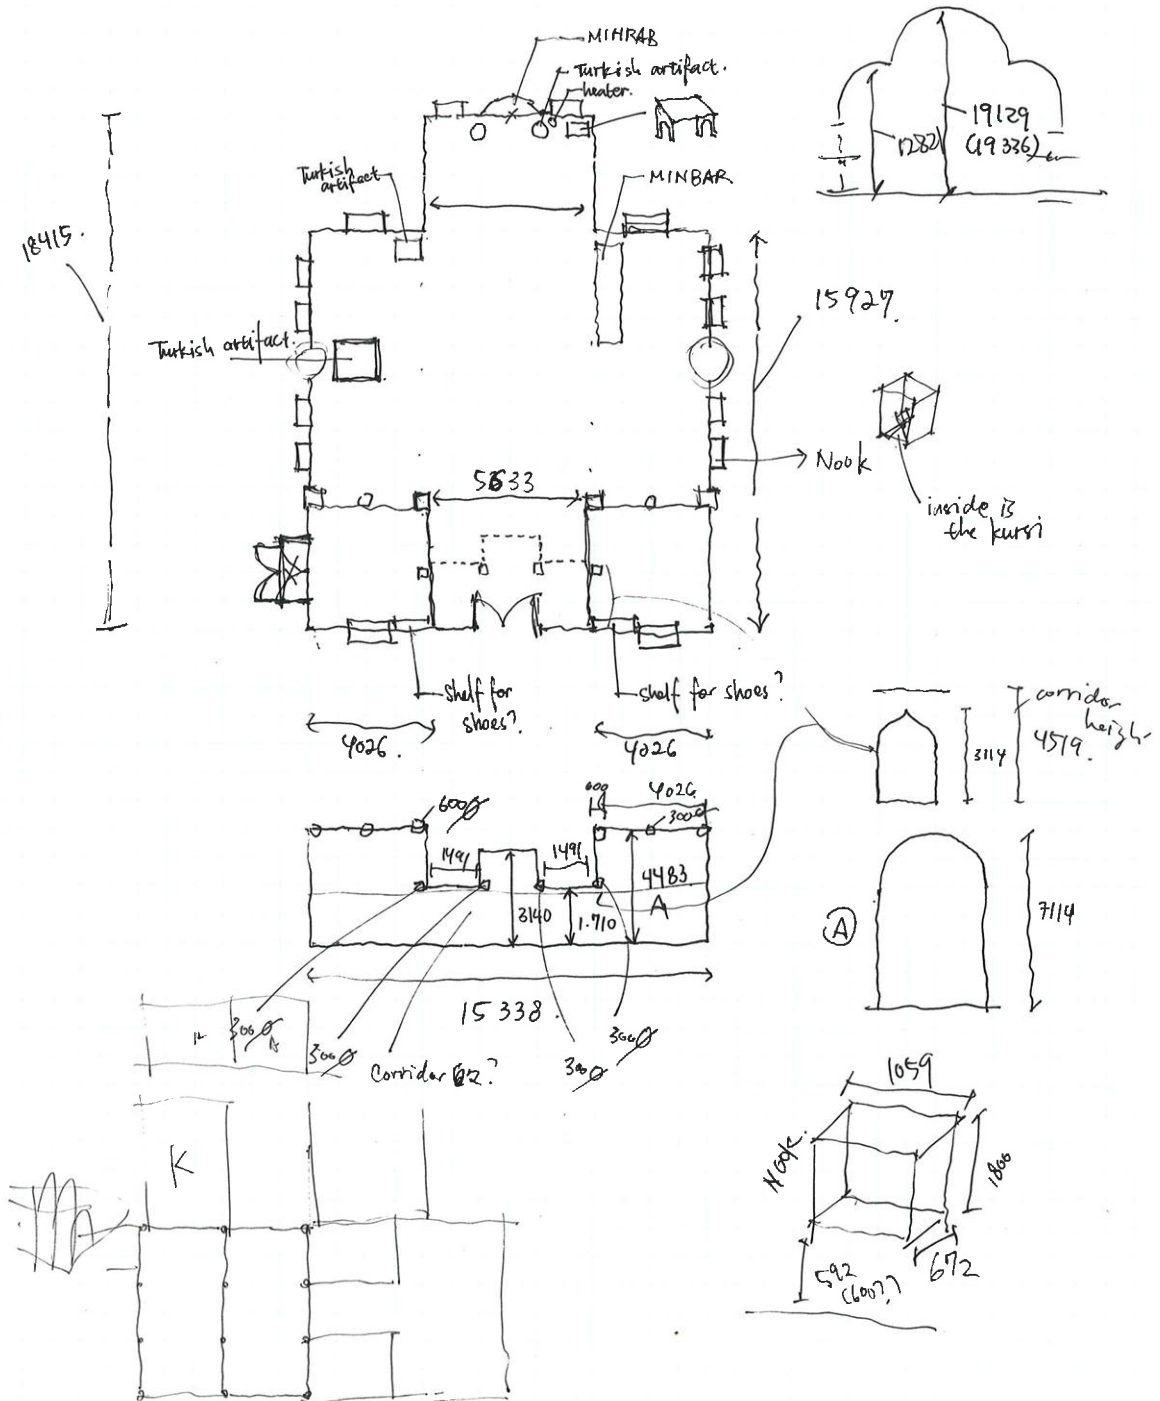 MIHRAB
Turkish artifact.
heater.
19129
(19336)
Turkish
artifact
MINBAR
18415.
15927.
Turkish artifact.
Nook
inside is
the kursi
Shelf for
shoes?
shelf for shoes?
4026.
4026
corridor
height
4519.
3114
600Ø
4026
300Ø
1491
1491
4483
A
3140
1.710
A
7114
15338.
300Ø
300Ø
300Ø
300Ø
K
1059
Nook.
1800
672
592
(600?)